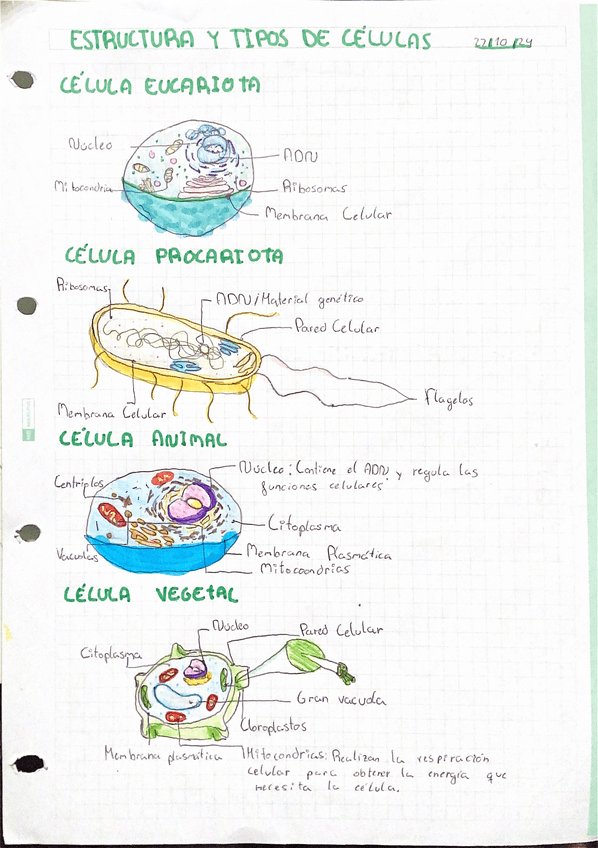 ESTRUCTURA Y TIPOS DE CÉLULAS 22/10/24
CÉLULA EUCARIOTA
Nucleo
ADN
Mitocondria
Ribosomas
Membrana Celular
CÉLULA PROCARIOTA
Ribosomas
ADN/Material genético
Pared Celular
Flagelos
Membrana Celular
CÉLULA ANIMAL
Nucleo: Contiene el ADN y regula las
funciones celulares
Centriolos
Citoplasma
Vacuolas
Membrana Plasmática
Mitocondrias
CÉLULA VEGETAL
Nucleo
Pared Celular
Citoplasma
Gran vacuola
Cloroplastos
Membrana plasmática
Mitocondrias: Realizan la respiración
celular para obtener la energía que
necesita la célula.